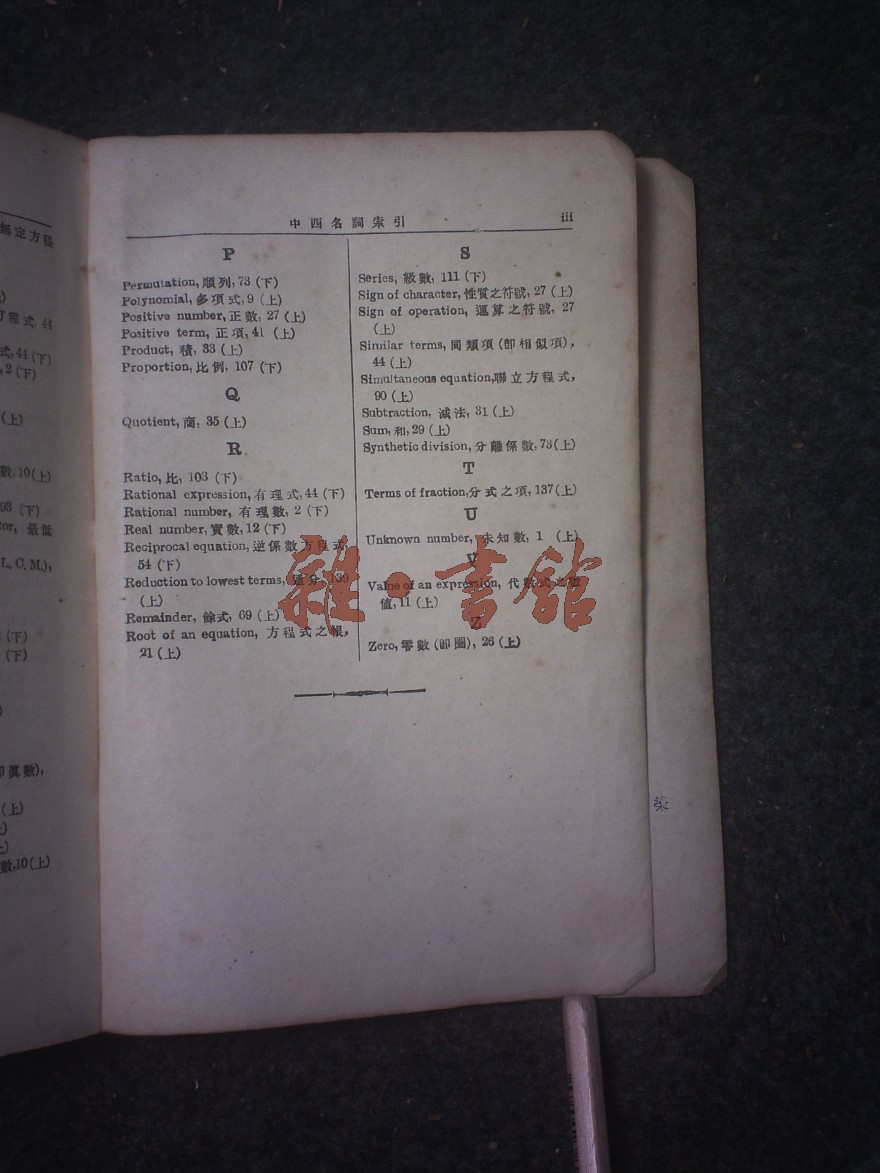 無定方程
程式, 44
式, 44 (下)
, 2 (下)
(上)
數, 10(上)
93 (下)
tor, 最低
L. C. M.),
(下)
(下)
即眞數),
(上)
數, 10(上)
中西名詞索引 iii
P
Permutation, 順列, 73 (下)
Polynomial, 多項式, 9 (上)
Positive number, 正數, 27 (上)
Positive term, 正項, 41 (上)
Product, 積, 33 (上)
Proportion, 比例, 107 (下)
Q
Quotient, 商, 35 (上)
R
Ratio, 比, 103 (下)
Rational expression, 有理式, 44 (下)
Rational number, 有理數, 2 (下)
Real number, 實數, 12 (下)
Reciprocal equation, 逆係數方程式,
54 (下)
Reduction to lowest terms, 約分, 139
(上)
Remainder, 餘式, 69 (上)
Root of an equation, 方程式之根,
21 (上)
S
Series, 級數, 111 (下)
Sign of character, 性質之符號, 27 (上)
Sign of operation, 運算之符號, 27
(上)
Similar terms, 同類項 (即相似項),
44 (上)
Simultaneous equation, 聯立方程式,
90 (上)
Subtraction, 減法, 31 (上)
Sum, 和, 29 (上)
Synthetic division, 分離係數, 73(上)
T
Terms of fraction, 分式之項, 137(上)
U
Unknown number, 未知數, 1 (上)
V
Value of an expression, 代數式之
值, 11 (上)
Z
Zero, 零數 (即圈), 26 (上)
雜·書館